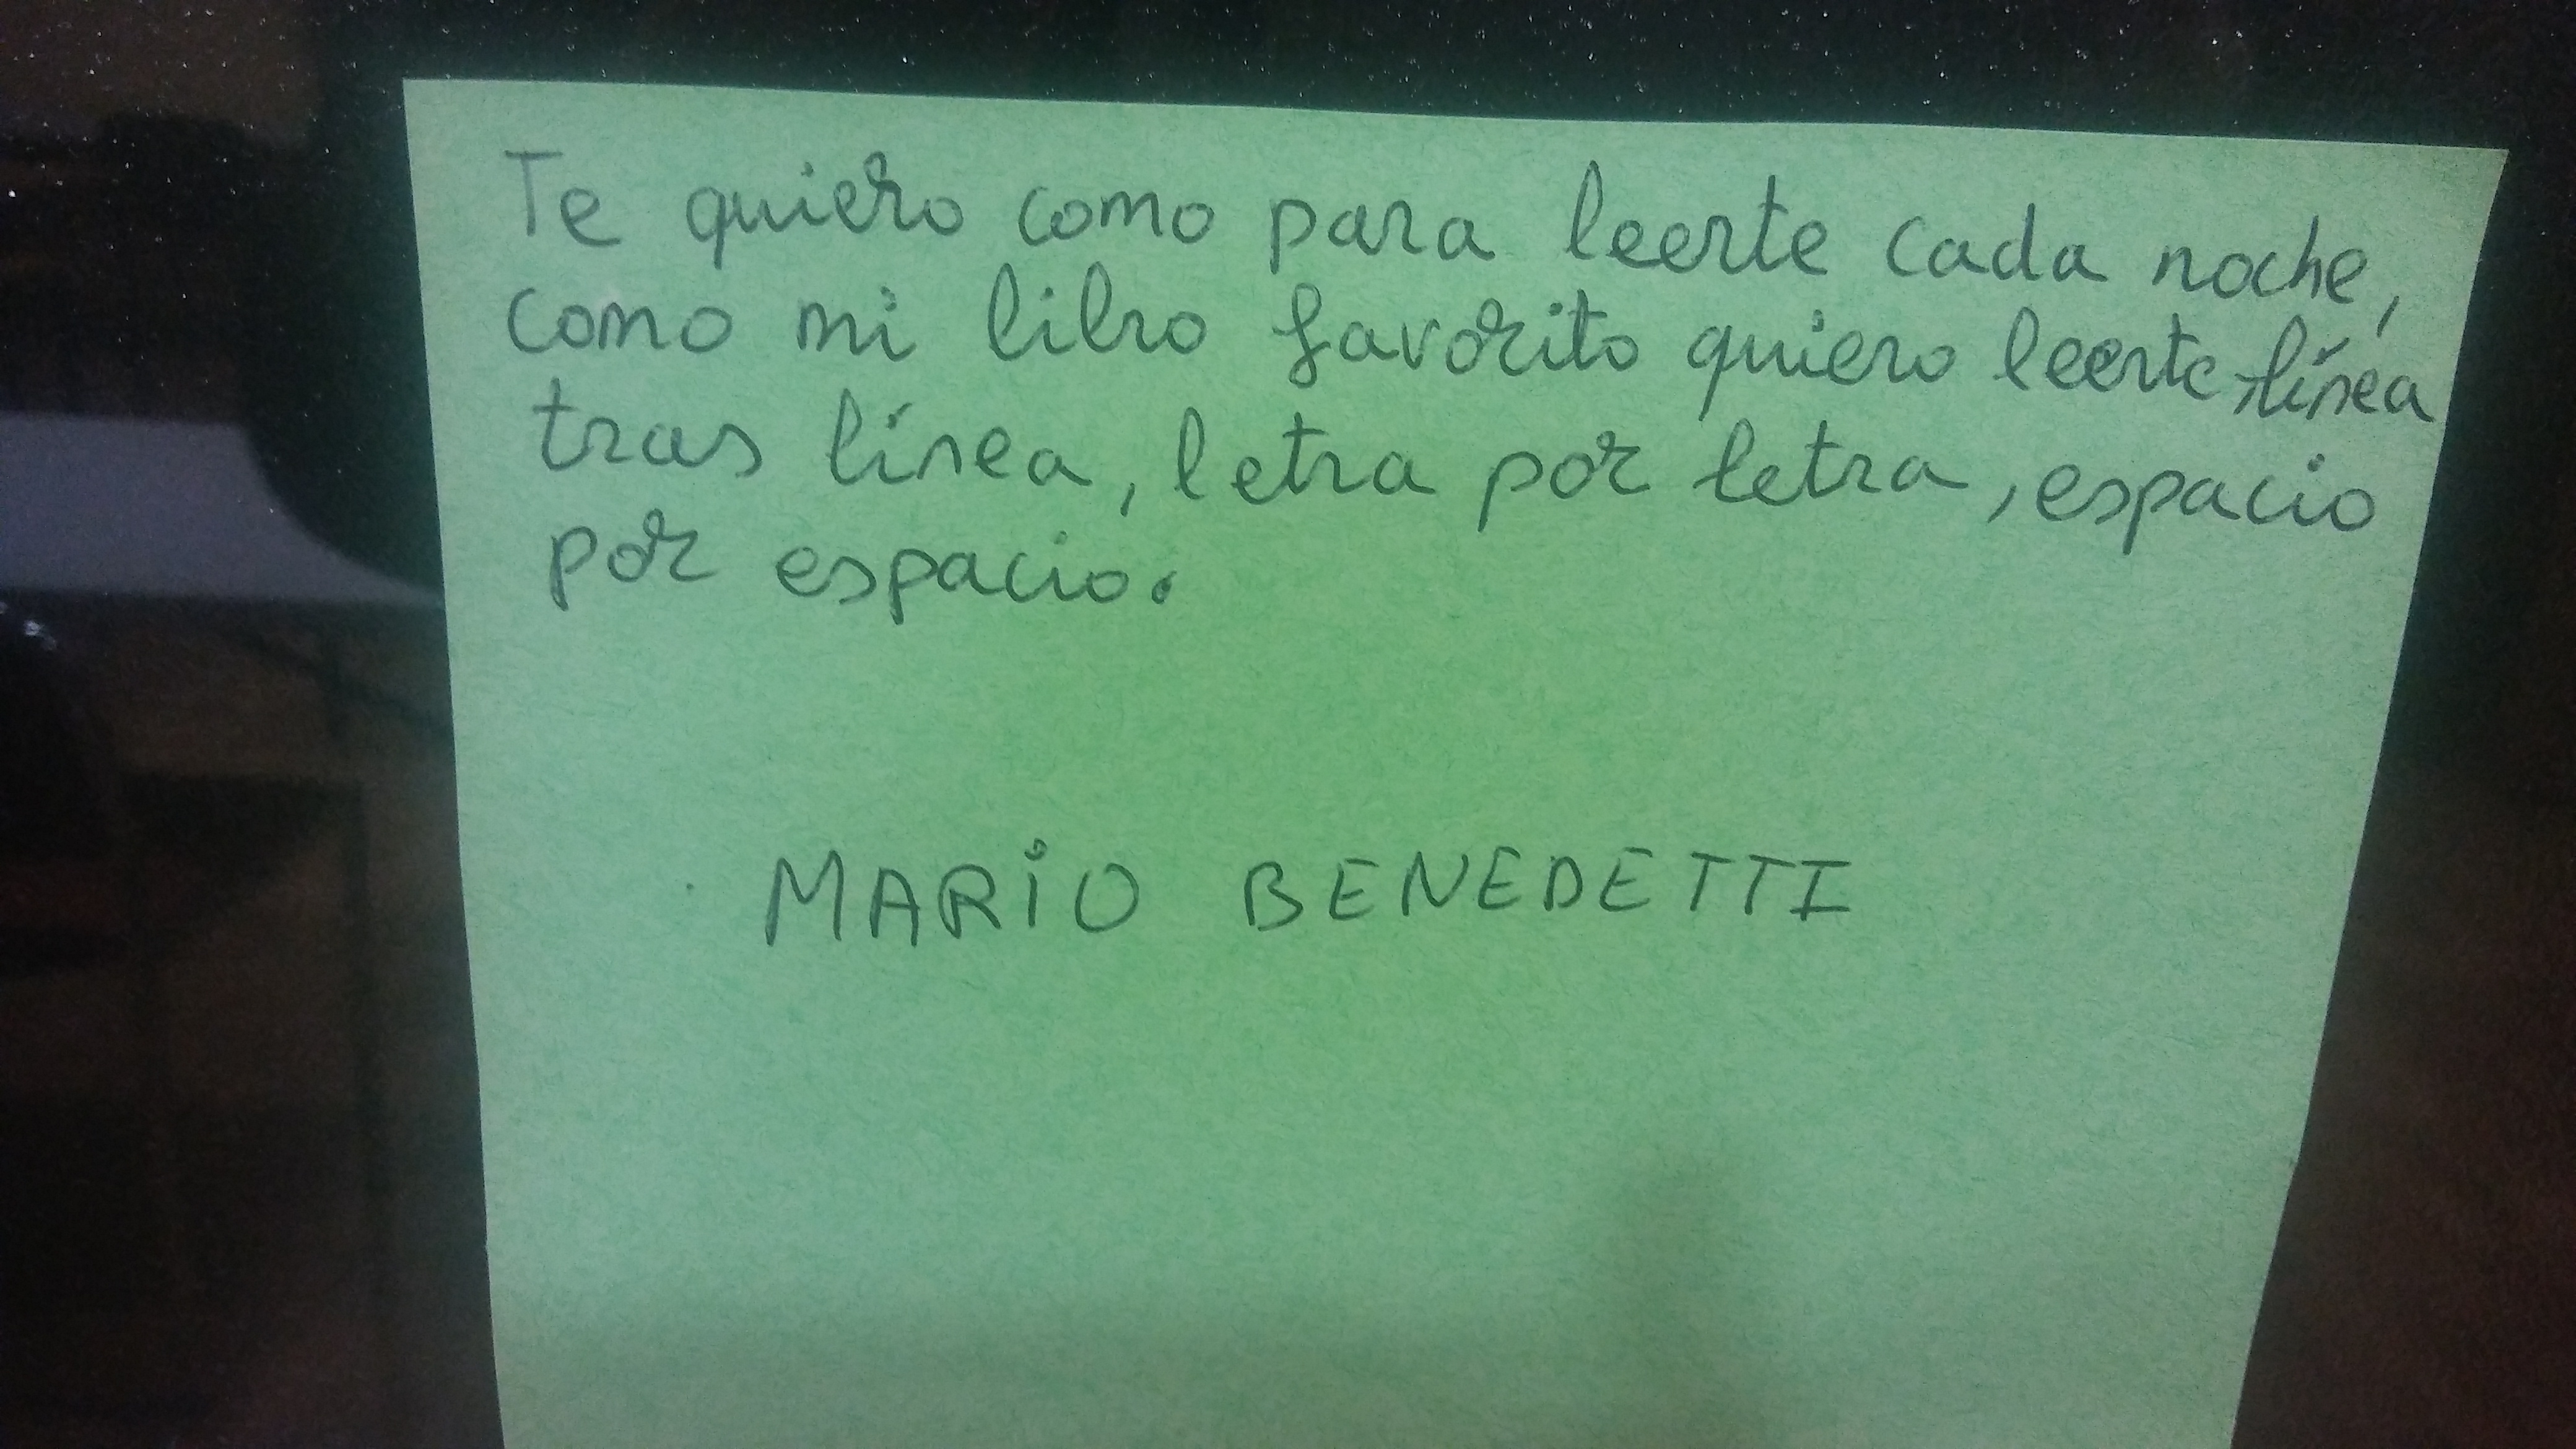 Te quiero como para leerte cada noche,
como mi libro favorito quiero leerte, línea
tras línea, letra por letra, espacio
por espacio.
MARIO BENEDETTI